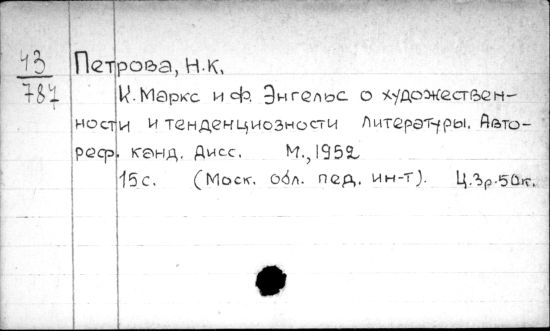 43
787
Петрова, Н.К.
К. Маркс и Ф. Энгельс о художествен-
ности и тенденциозности литературы. Авто-
реф. канд. дисс. М., 1952
15 с. (Моск. обл. пед. ин-т). Ц.3р.50к.